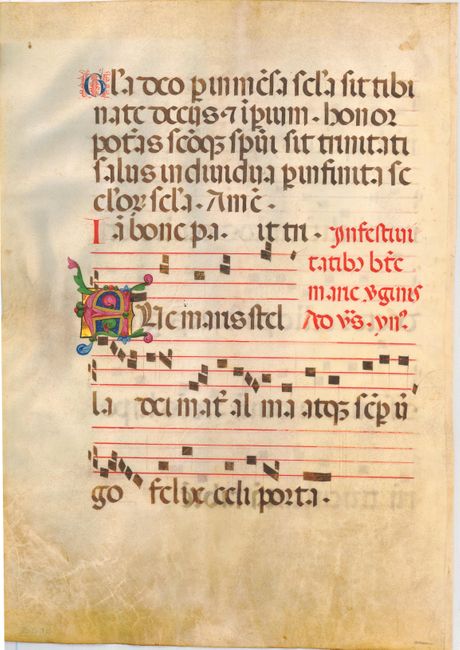 Gl'a deo p inmēsa sc̄la sit tibi
nate decus ⁊ īpium · honor
potās sc̄oqꝫ spūi sit trinitati
salus indiuidua p infinita se
cl'oꝝ sc̄l'a · Amē ·
Iā bone pa · it tri · In festiui
tatibꝰ bt̄e
marie v̄ginis
Ad v̄s · yn̄ꝰ
Aue maris stel
la dei mat̄ al ma atqꝫ sēp ui
go felix celi porta ·